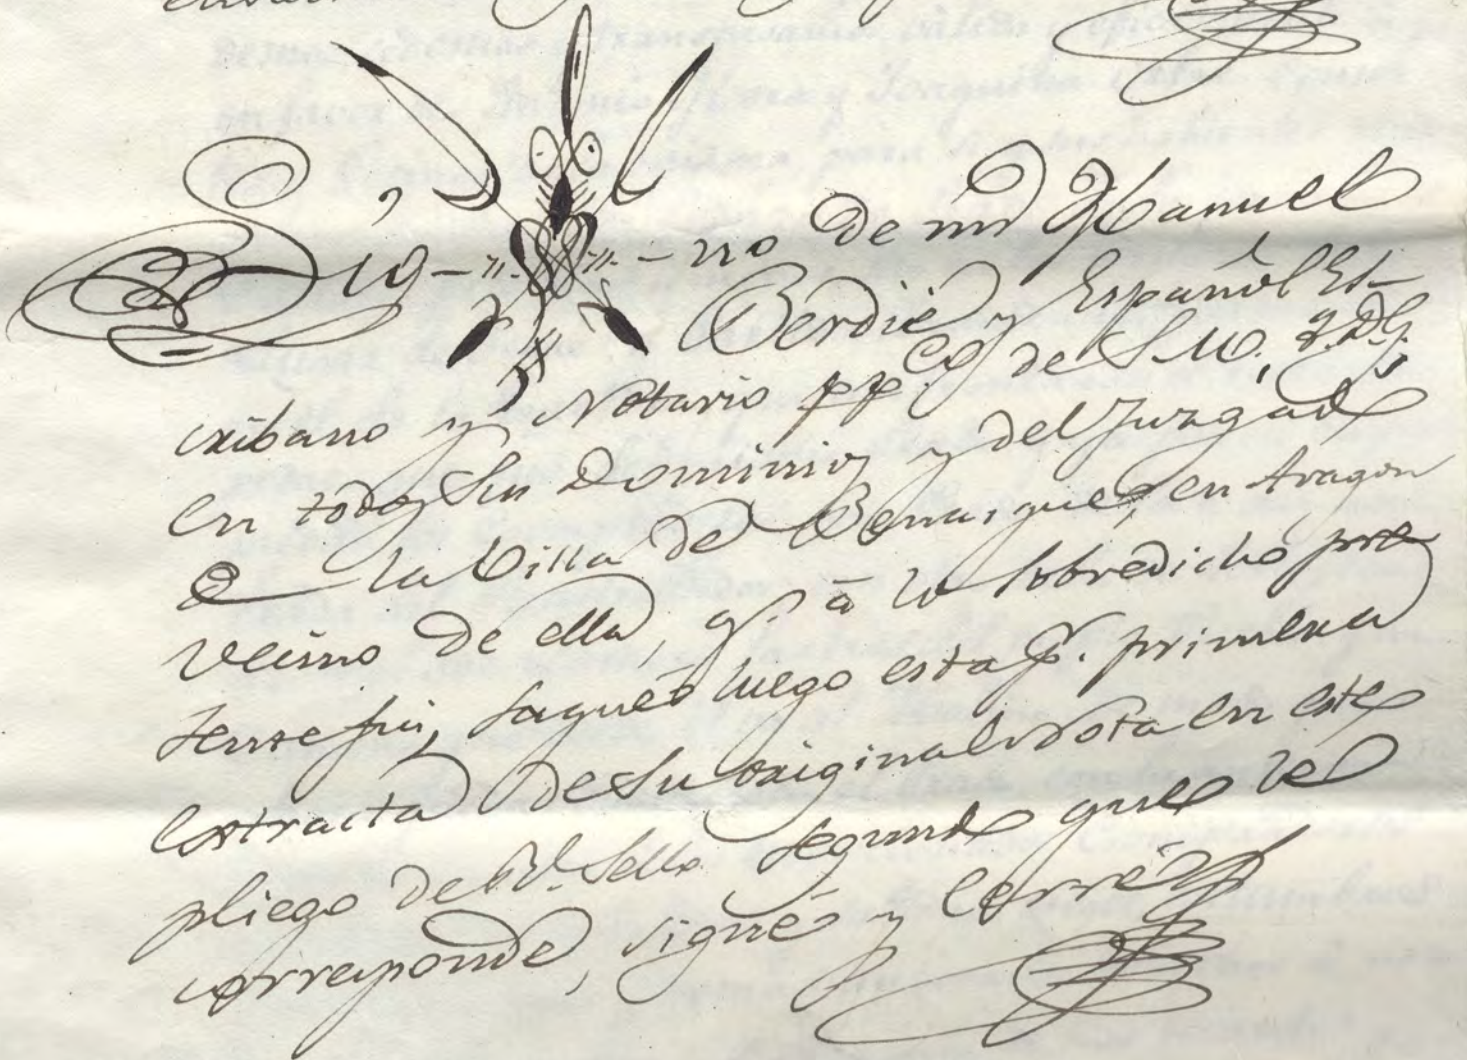 Sig-no de mi Manuel
Berdié y Español Es-
cribano y Notario pp.co de S. M., q. D. G.
en todos Sus Dominios y del Juzgado
de la Villa de Benasque, en Aragon
vecino de ella, q.e à lo sobredicho pre
sente fui, saqué luego esta pr. primera
extracta de su original Nota en este
pliego de R.l Sello Segundo que le
corresponde, signé y cerré